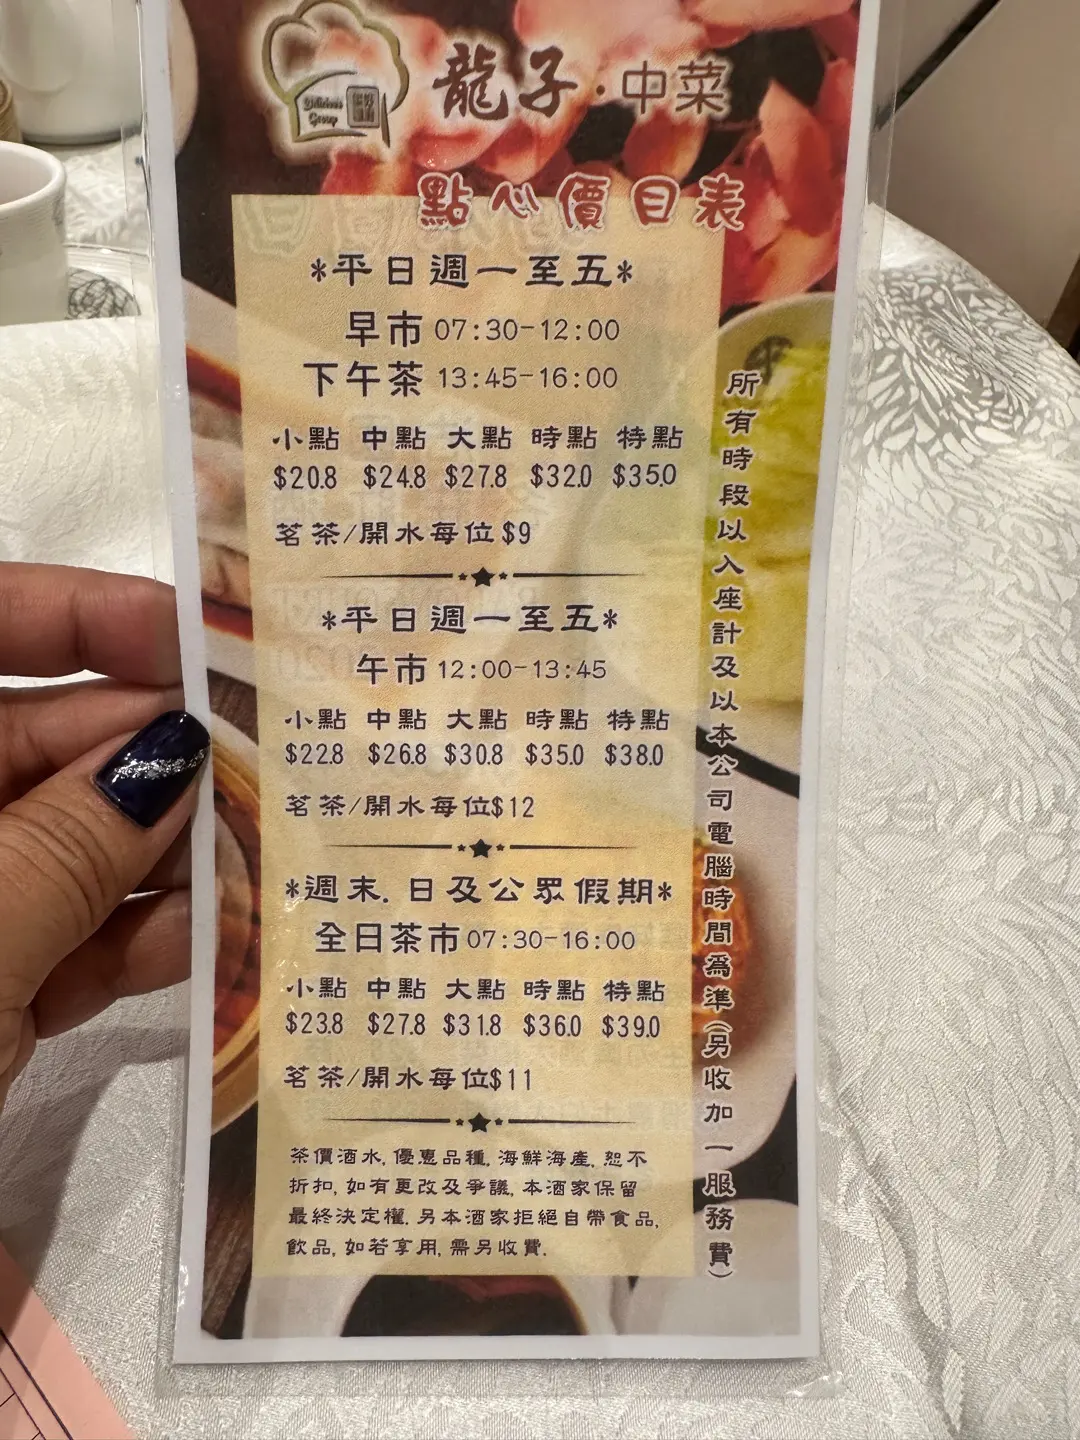 Delicious
Group
龍子·中菜
點心價目表
*平日週一至五*
早市 07:30-12:00
下午茶 13:45-16:00
小點 中點 大點 時點 特點
$20.8 $24.8 $27.8 $32.0 $35.0
茗茶/開水每位$9
*平日週一至五*
午市 12:00-13:45
小點 中點 大點 時點 特點
$22.8 $26.8 $30.8 $35.0 $38.0
茗茶/開水每位$12
*週末.日及公眾假期*
全日茶市 07:30-16:00
小點 中點 大點 時點 特點
$23.8 $27.8 $31.8 $36.0 $39.0
茗茶/開水每位$11
茶價酒水,優惠品種,海鮮海產,恕不
折扣,如有更改及爭議,本酒家保留
最終決定權.另本酒家拒絕自帶食品,
飲品,如若享用,需另收費.
所有時段以入座計及以本公司電腦時間為準(另收加一服務費)